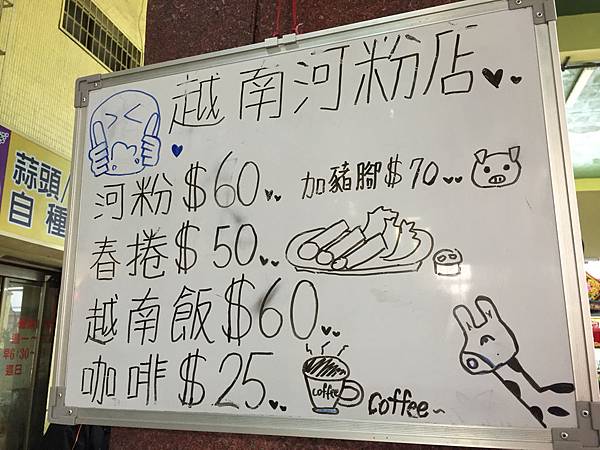 越南河粉店
河粉$60 加豬腳$70
春捲$50
越南飯$60
咖啡$25 coffee coffee~
蒜頭
自種
早6:30
週日